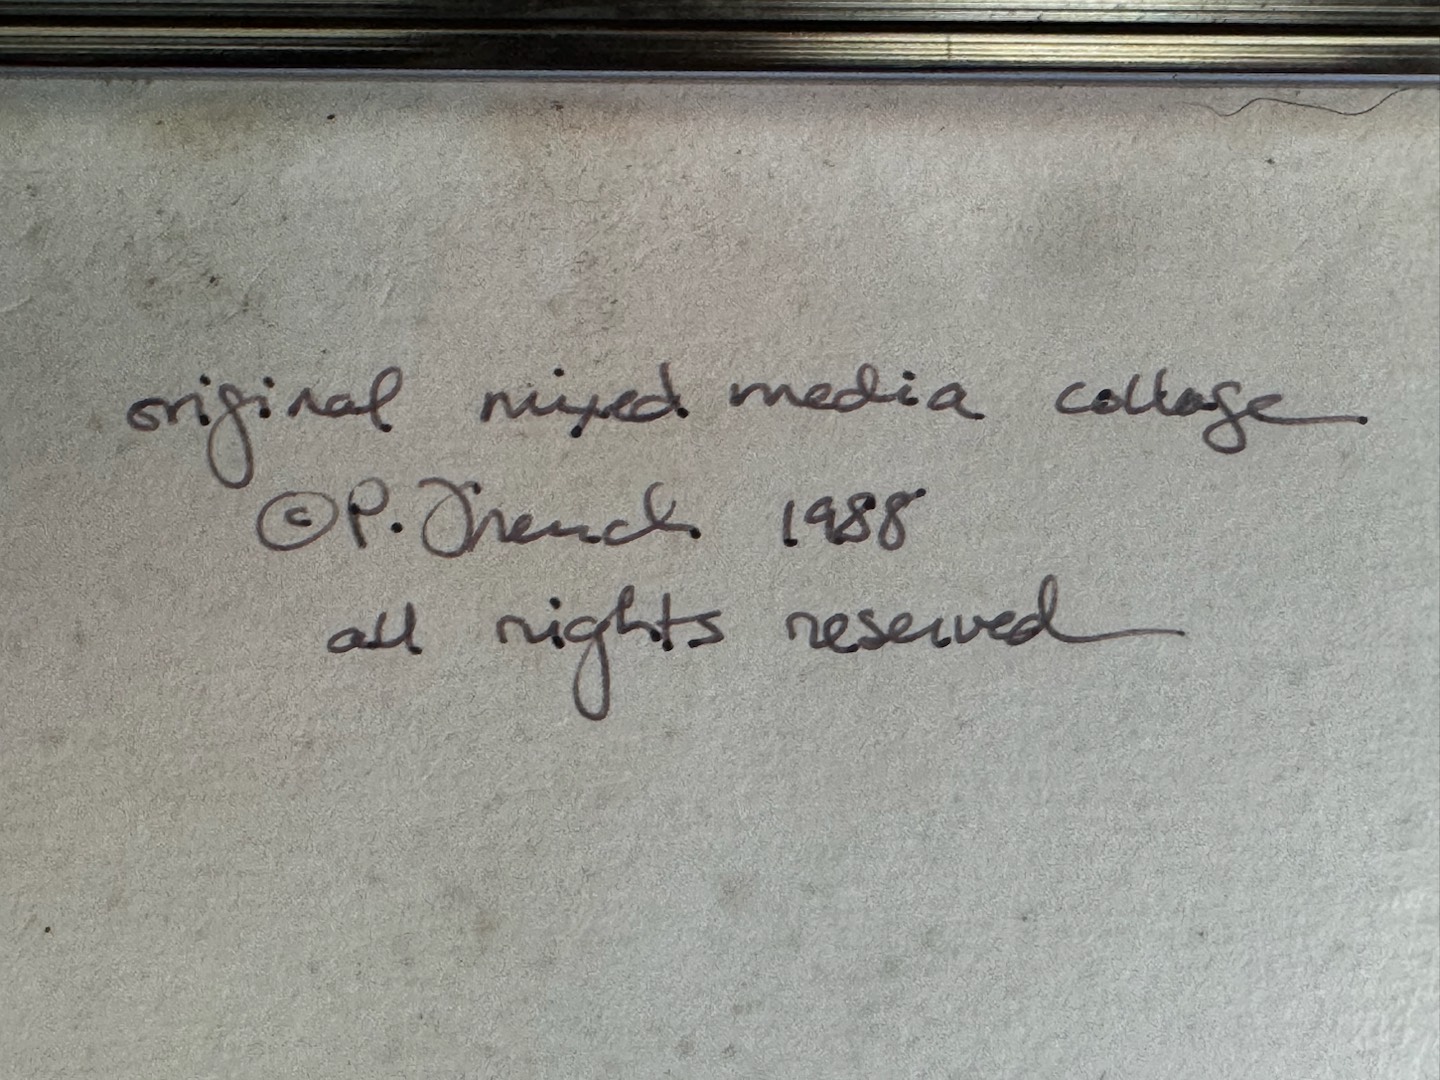 original mixed media collage
© P. French 1988
all rights reserved